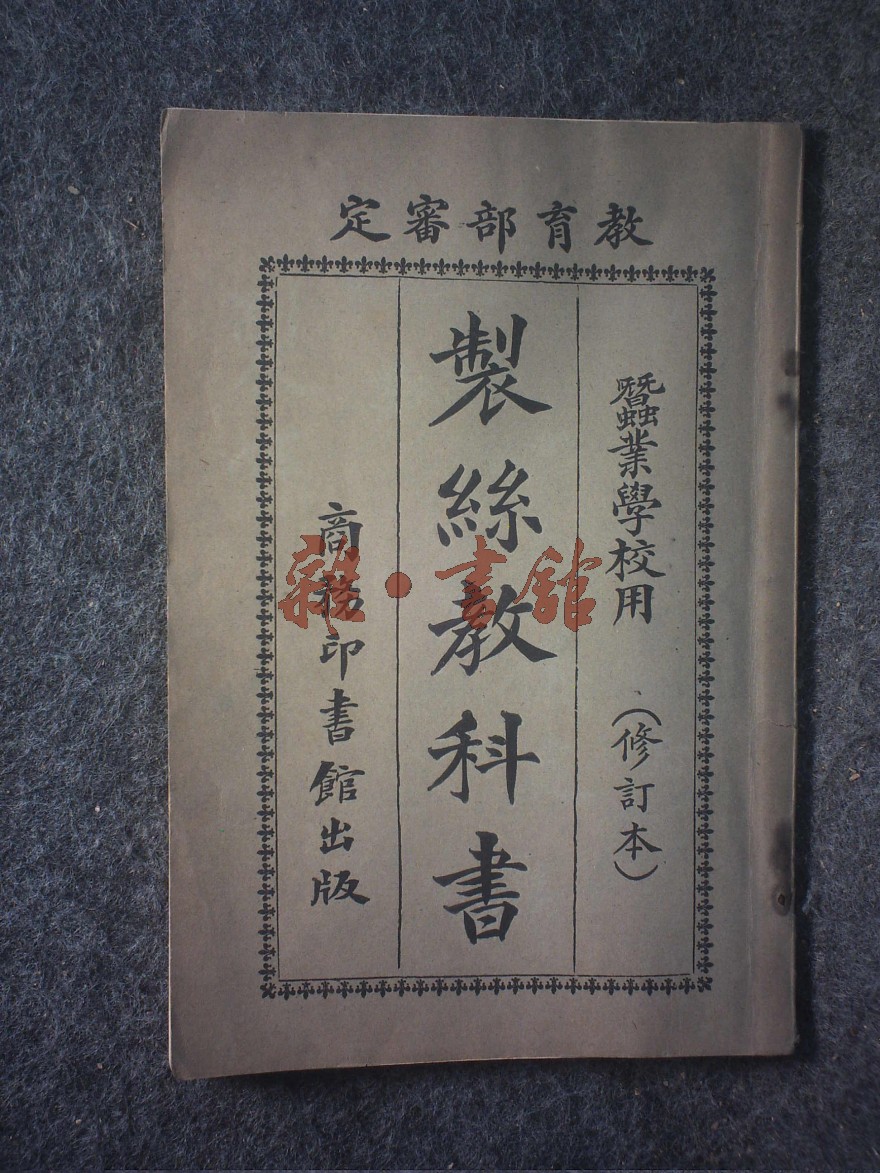 教育部審定
蠶業學校用（修訂本）
製絲教科書
商務印書館出版
雜·書舘